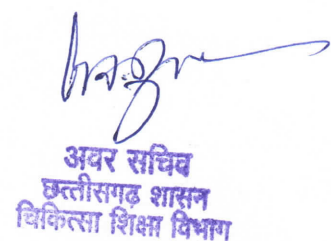 अवर सचिव
छत्तीसगढ़ शासन
चिकित्सा शिक्षा विभाग